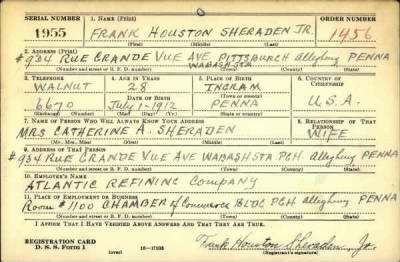 SERIAL NUMBER 1. NAME (Print) ORDER NUMBER
1955 FRANK HOUSTON SHERADEN JR. 1456
(First) (Middle) (Last)
2. ADDRESS (Print)
#934 RUE GRANDE VUE AVE PITTSBURGH Allegheny PENNA
WABASH STA
(Number and street or R. F. D. number) (Town) (County) (State)
3. TELEPHONE 4. AGE IN YEARS 5. PLACE OF BIRTH 6. COUNTRY OF CITIZENSHIP
WALNUT 28 INGRAM
(Town or county)
DATE OF BIRTH
6670 July 1-1912 PENNA U.S.A.
(Exchange) (Number) (Mo.) (Day) (Yr.) (State or country)
7. NAME OF PERSON WHO WILL ALWAYS KNOW YOUR ADDRESS 8. RELATIONSHIP OF THAT PERSON
MRS CATHERINE A. SHERADEN WIFE
(Mr., Mrs., Miss) (First) (Middle) (Last)
9. ADDRESS OF THAT PERSON
#934 RUE GRANDE VUE AVE WABASH STA PGH. Allegheny PENNA
(Number and street or R. F. D. number) (Town) (County) (State)
10. EMPLOYER'S NAME
ATLANTIC REFINING COMPANY
11. PLACE OF EMPLOYMENT OR BUSINESS
Room #1100 CHAMBER of Commerce BLDG PGH Allegheny PENNA
(Number and street or R. F. D. number) (Town) (County) (State)
I AFFIRM THAT I HAVE VERIFIED ABOVE ANSWERS AND THAT THEY ARE TRUE.
REGISTRATION CARD
D. S. S. Form 1 (over) 16—17105 Frank Houston Sheraden, Jr.
(Registrant's signature)